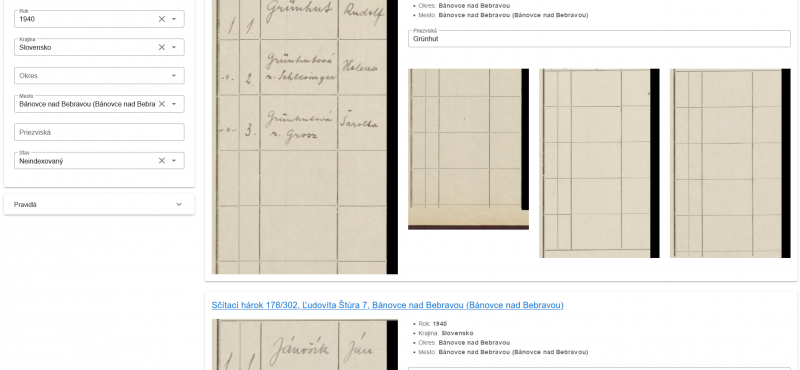 Rok
1940
Krajina
Slovensko
Okres
Mesto
Bánovce nad Bebravou (Bánovce nad Bebra
Priezviská
Stav
Neindexovaný
Pravidlá
1 1 Grünhut Rudolf
-"- 2. Grünhutová Helena
r. Schlesinger
-"- 3. Grünhutová Šarolta
r. Grosz
Okres: Bánovce nad Bebravou
Mesto: Bánovce nad Bebravou (Bánovce nad Bebravou)
Priezviská
Grünhut
Sčítací hárok 178/302, Ľudovíta Štúra 7, Bánovce nad Bebravou (Bánovce nad Bebravou)
1 1 Jánošík Ján
Rok: 1940
Krajina: Slovensko
Okres: Bánovce nad Bebravou
Mesto: Bánovce nad Bebravou (Bánovce nad Bebravou)